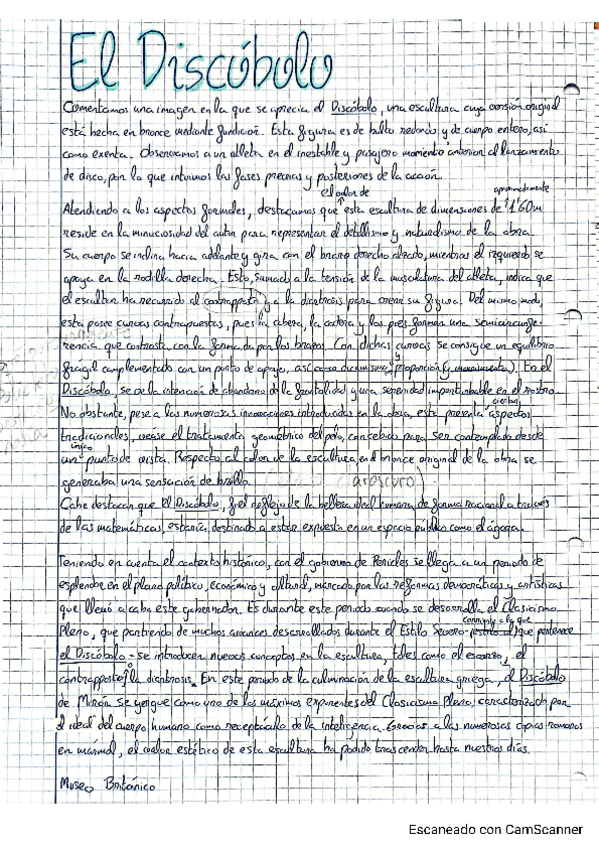 El Discóbolo
Comentamos una imagen en la que se aprecia el Discóbolo, una escultura cuya versión original
está hecha en bronce mediante fundición. Esta figura es de bulto redondo y de cuerpo entero, así
como exenta. Observamos a un atleta en el inestable y pasajero momento anterior al lanzamiento
de disco, por lo que intuimos las fases previas y posteriores de la acción.
el valor de aproximadamente
Atendiendo a los aspectos formales, destacamos que esta escultura de dimensiones de 1'60m
reside en la minuciosidad del autor para representar el detallismo y naturalismo de la obra.
Su cuerpo se inclina hacia adelante y gira con el brazo derecho alzado, mientras el izquierdo se
apoya en la rodilla derecha. Esto, sumado a la tensión de la musculatura del atleta, indica que
el escultor ha recurrido al contrapposto y a la diartrosis para crear su figura. Del mismo modo,
esta posee curvas contrapuestas, pues la cabeza, la cadera y los pies forman una semicircunfe-
rencia que contrasta con la formada por los brazos. Con dichas curvas se consigue un equilibrio
frágil complementado con un punto de apoyo, así como proporción (y movimiento). En el
Discóbolo, se ve la intención de abandono de la frontalidad y una serenidad imperturbable en el rostro.
No obstante, pese a las numerosas innovaciones introducidas en la obra, esta presenta ciertos aspectos
tradicionales, véase el tratamiento geométrico del pelo, concebido para ser contemplado desde
un único punto de vista. Respecto al color de la escultura, el bronce original de la obra se
generaba una sensación de brillo. claroscuro)
Cabe destacar que el Discóbolo, fiel reflejo de la belleza ideal humana, de forma racional a través
de las matemáticas, estaría destinado a estar expuesta en un espacio público como el ágora.
Teniendo en cuenta el contexto histórico, con el gobierno de Pericles se llega a un periodo de
esplendor en el plano político, económico y cultural, marcado por las reformas democráticas y artísticas
que llevó a cabo este gobernador. Es durante este periodo cuando se desarrolla el Clasicismo
Pleno, que partiendo de muchos avances desarrollados durante el Estilo Severo - corriente a la que pertenece
el Discóbolo - se introducen nuevos conceptos en la escultura, tales como el escorzo, el
contrapposto y la diartrosis. En este periodo de la culminación de la escultura griega, el Discóbolo
de Mirón se yergue como uno de los máximos exponentes del Clasicismo Pleno, caracterizado por
el ideal del cuerpo humano como receptáculo de la inteligencia. Gracias a las numerosas copias romanas
en mármol, el valor estético de esta escultura ha podido trascender hasta nuestros días.
Museo Británico
Escaneado con CamScanner